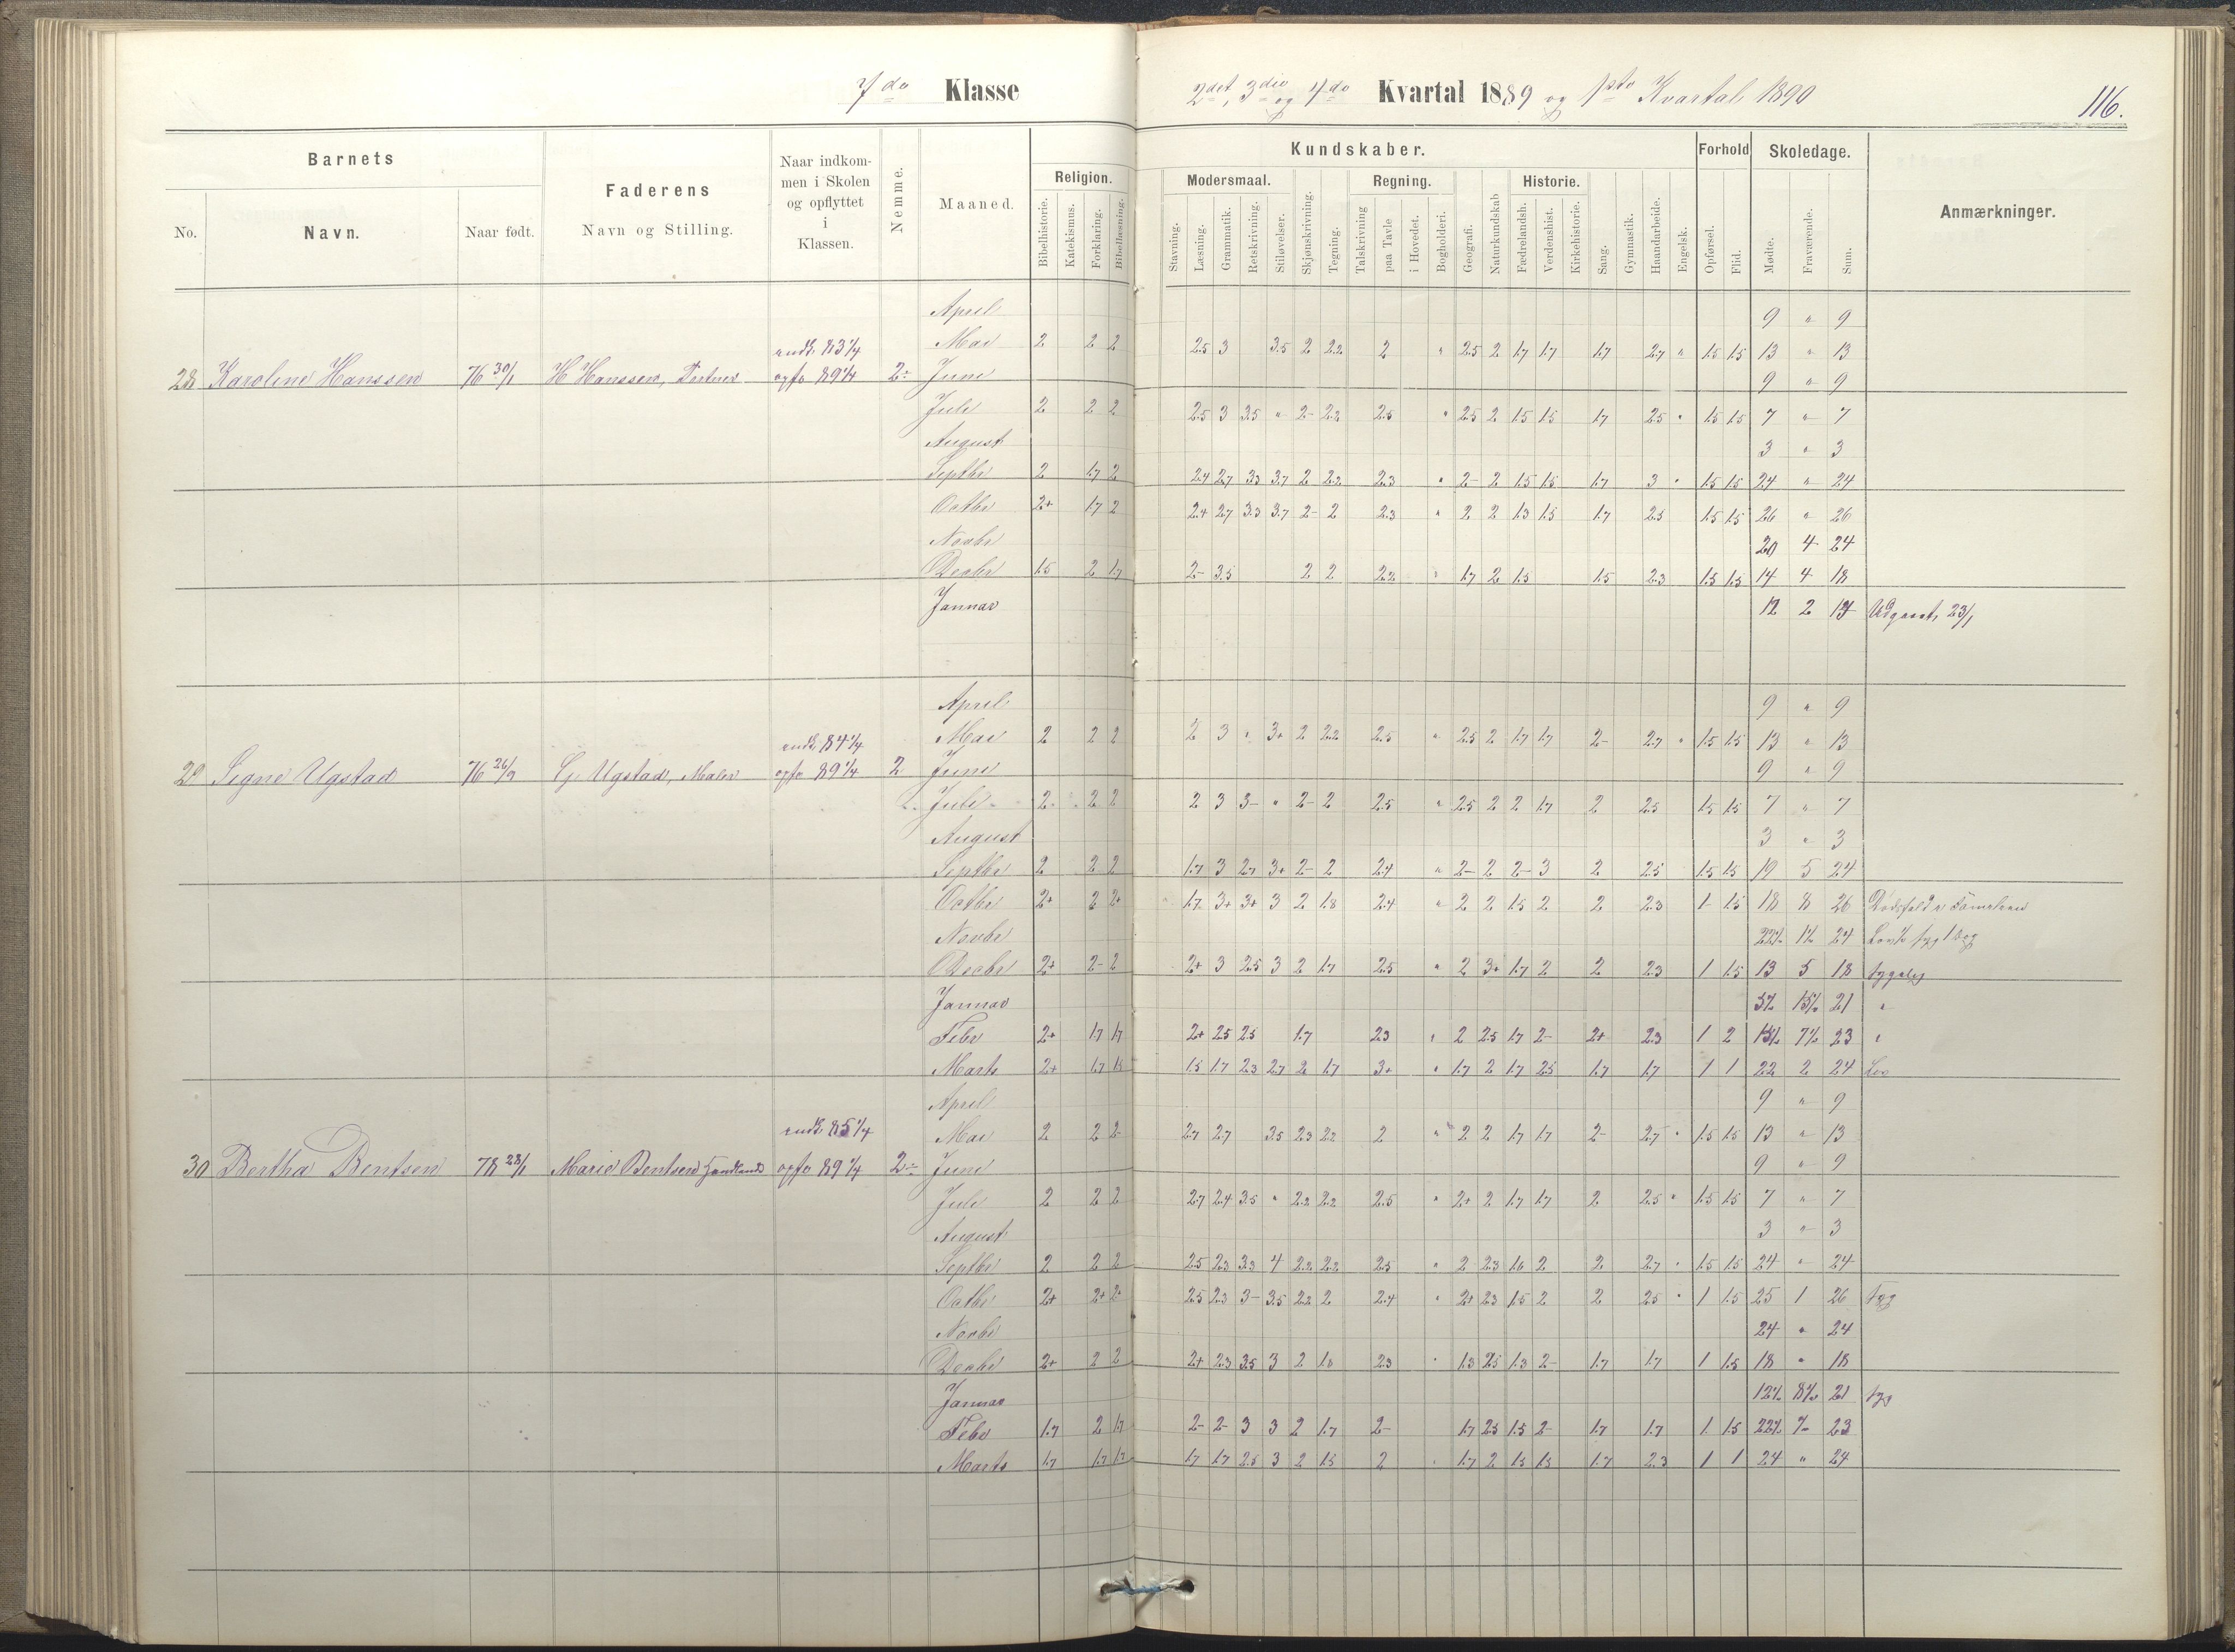 7de Klasse 2det, 3die og 4de Kvartal 1889 og 1ste Kvartal 1890 116.
Barnets Kundskaber. Forhold Skoledage.
No. Navn. Naar født. Faderens Navn og Stilling. Naar indkommen i Skolen og opflyttet i Klassen. Nemme. Maaned. Religion. Modersmaal. Regning. Historie. Anmærkninger.
Bibelhistorie. Katekismus. Forklaring. Bibellæsning. Stavning. Læsning. Grammatik. Retskrivning. Stiløvelser. Skjønskrivning. Tegning. Talskrivning paa Tavle i Hovedet. Bogholderi. Geografi. Naturkundskab Fædrelandsh. Verdenshist. Kirkehistorie. Sang. Gymnastik. Haandarbeide. Engelsk. Opførsel. Flid. Mødte. Fraværende. Sum.
April 9 " 9
indk. 83 1/4 Mai 2 2 2 2.5 3 3.5 2 2.2 2 " 2.5 2 1.7 1.7 1.7 2.7 " 1.5 1.5 13 " 13
28 Karoline Hanssen 76 30/1 H Hanssen, opfl 89 1/4 2- Juni 9 " 9
Juli 2 2 2 2.5 3 3.5 " 2- 2.2 2.5 " 2.5 2 1.5 1.5 1.7 2.5 " 1.5 1.5 7 " 7
August 3 " 3
Septbr 2 1.7 2 2.4 2.7 3.3 3.7 2 2.2 2.3 " 2- 2 1.5 1.5 1.7 3 " 1.5 1.5 24 " 24
Octbr 2+ 1.7 2 2.4 2.7 3.3 3.7 2- 2 2.3 " 2 2 1.3 1.5 1.7 2.5 1.5 1.5 26 " 26
Novbr 20 4 24
Decbr 1.5 2 1.7 2- 3.5 2 2 2.2 " 1.7 2 1.5 1.5 2.3 1.5 1.5 14 4 18
Januar 12 2 Udgaat 23/1
April 9 " 9
indk. 84 1/4 Mai 2 2 2 2 3 " 3+ 2 2.2 2.5 " 2.5 2 1.7 1.7 2- 2.7 " 1.5 1.5 13 " 13
29 Signe Ugstad 76 26/9 G. Ugstad, Maler opfl 89 1/4 2 Juni 9 " 9
Juli 2 2 2 2 3 3- " 2- 2 2.5 " 2.5 2 2 1.7 2 2.5 1.5 1.5 7 " 7
August 3 " 3
Septbr 2 2 2 1.7 3 2.7 3+ 2- 2 2.4 " 2- 2 2- 3 2 2.5 1.5 1.5 19 5 24
Octbr 2+ 2 2+ 1.7 3+ 3+ 3 2 1.8 2.4 " 2 2 1.5 2 2 2.3 1 1.5 18 8 26 Dødsfald i Familien
Novbr 22½ 1½ 24
Decbr 2+ 2- 2 2+ 3 2.5 3 2 1.7 2.5 " 2 3+ 1.7 2 2 2.3 1 1.5 13 5 18
Januar 5½ 15½ 21 "
Febr 2+ 1.7 1.7 2+ 2.5 2.5 1.7 2.3 " 2 2.5 1.7 2- 2+ 2.3 1 2 15½ 7½ 23 "
Marts 2+ 1.7 1.5 1.5 1.7 2.3 2.7 2 1.7 3+ " 1.7 2 1.7 2.5 1.7 1.7 1 1 22 2 24 Lov
April 9 " 9
indk. 85 1/4 Mai 2 2 2- 2.7 2.7 3.5 2.3 2.2 2 " 2 2 1.7 1.7 2- 2.7 " 1.5 1.5 13 " 13
30 Bertha Bentsen 78 28/1 Marie Bentsen opfl 89 1/4 2- Juni 9 " 9
Juli 2 2 2 2.7 2.4 3.5 " 2.2 2.2 2.5 " 2+ 2 1.7 1.7 2 2.5 " 1.5 1.5 7 " 7
August 3 " 3
Septbr 2 2 2 2.5 2.3 3.3 4 2.2 2.2 2.5 " 2 2.3 1.6 2 2 2.7 " 1.5 1.5 24 " 24
Octbr 2+ 2+ 2+ 2.5 2.3 3- 3.5 2.2 2 2.4 " 2+ 2.3 1.5 2 2 2.5 " 1 1.5 25 1 26 Syg
Novbr 24 " 24
Decbr 2+ 2 2 2+ 2.3 3.5 3 2 1.8 2.3 " 1.3 2.5 1.3 2- 1.7 1.7 1 1.5 18 " 18
Januar 12½ 8½ 21 syg
Febr 1.7 2 1.7 2- 2- 3 3 2 1.7 2- 1.7 2.5 1.5 2- 1.7 1.7 1 1.5 22½ ½ 23
Marts 1.7 1.7 1.7 1.7 1.7 2.5 3 2 1.5 2 " 1.7 2 1.5 1.5 1.7 2.3 1 1 24 " 24